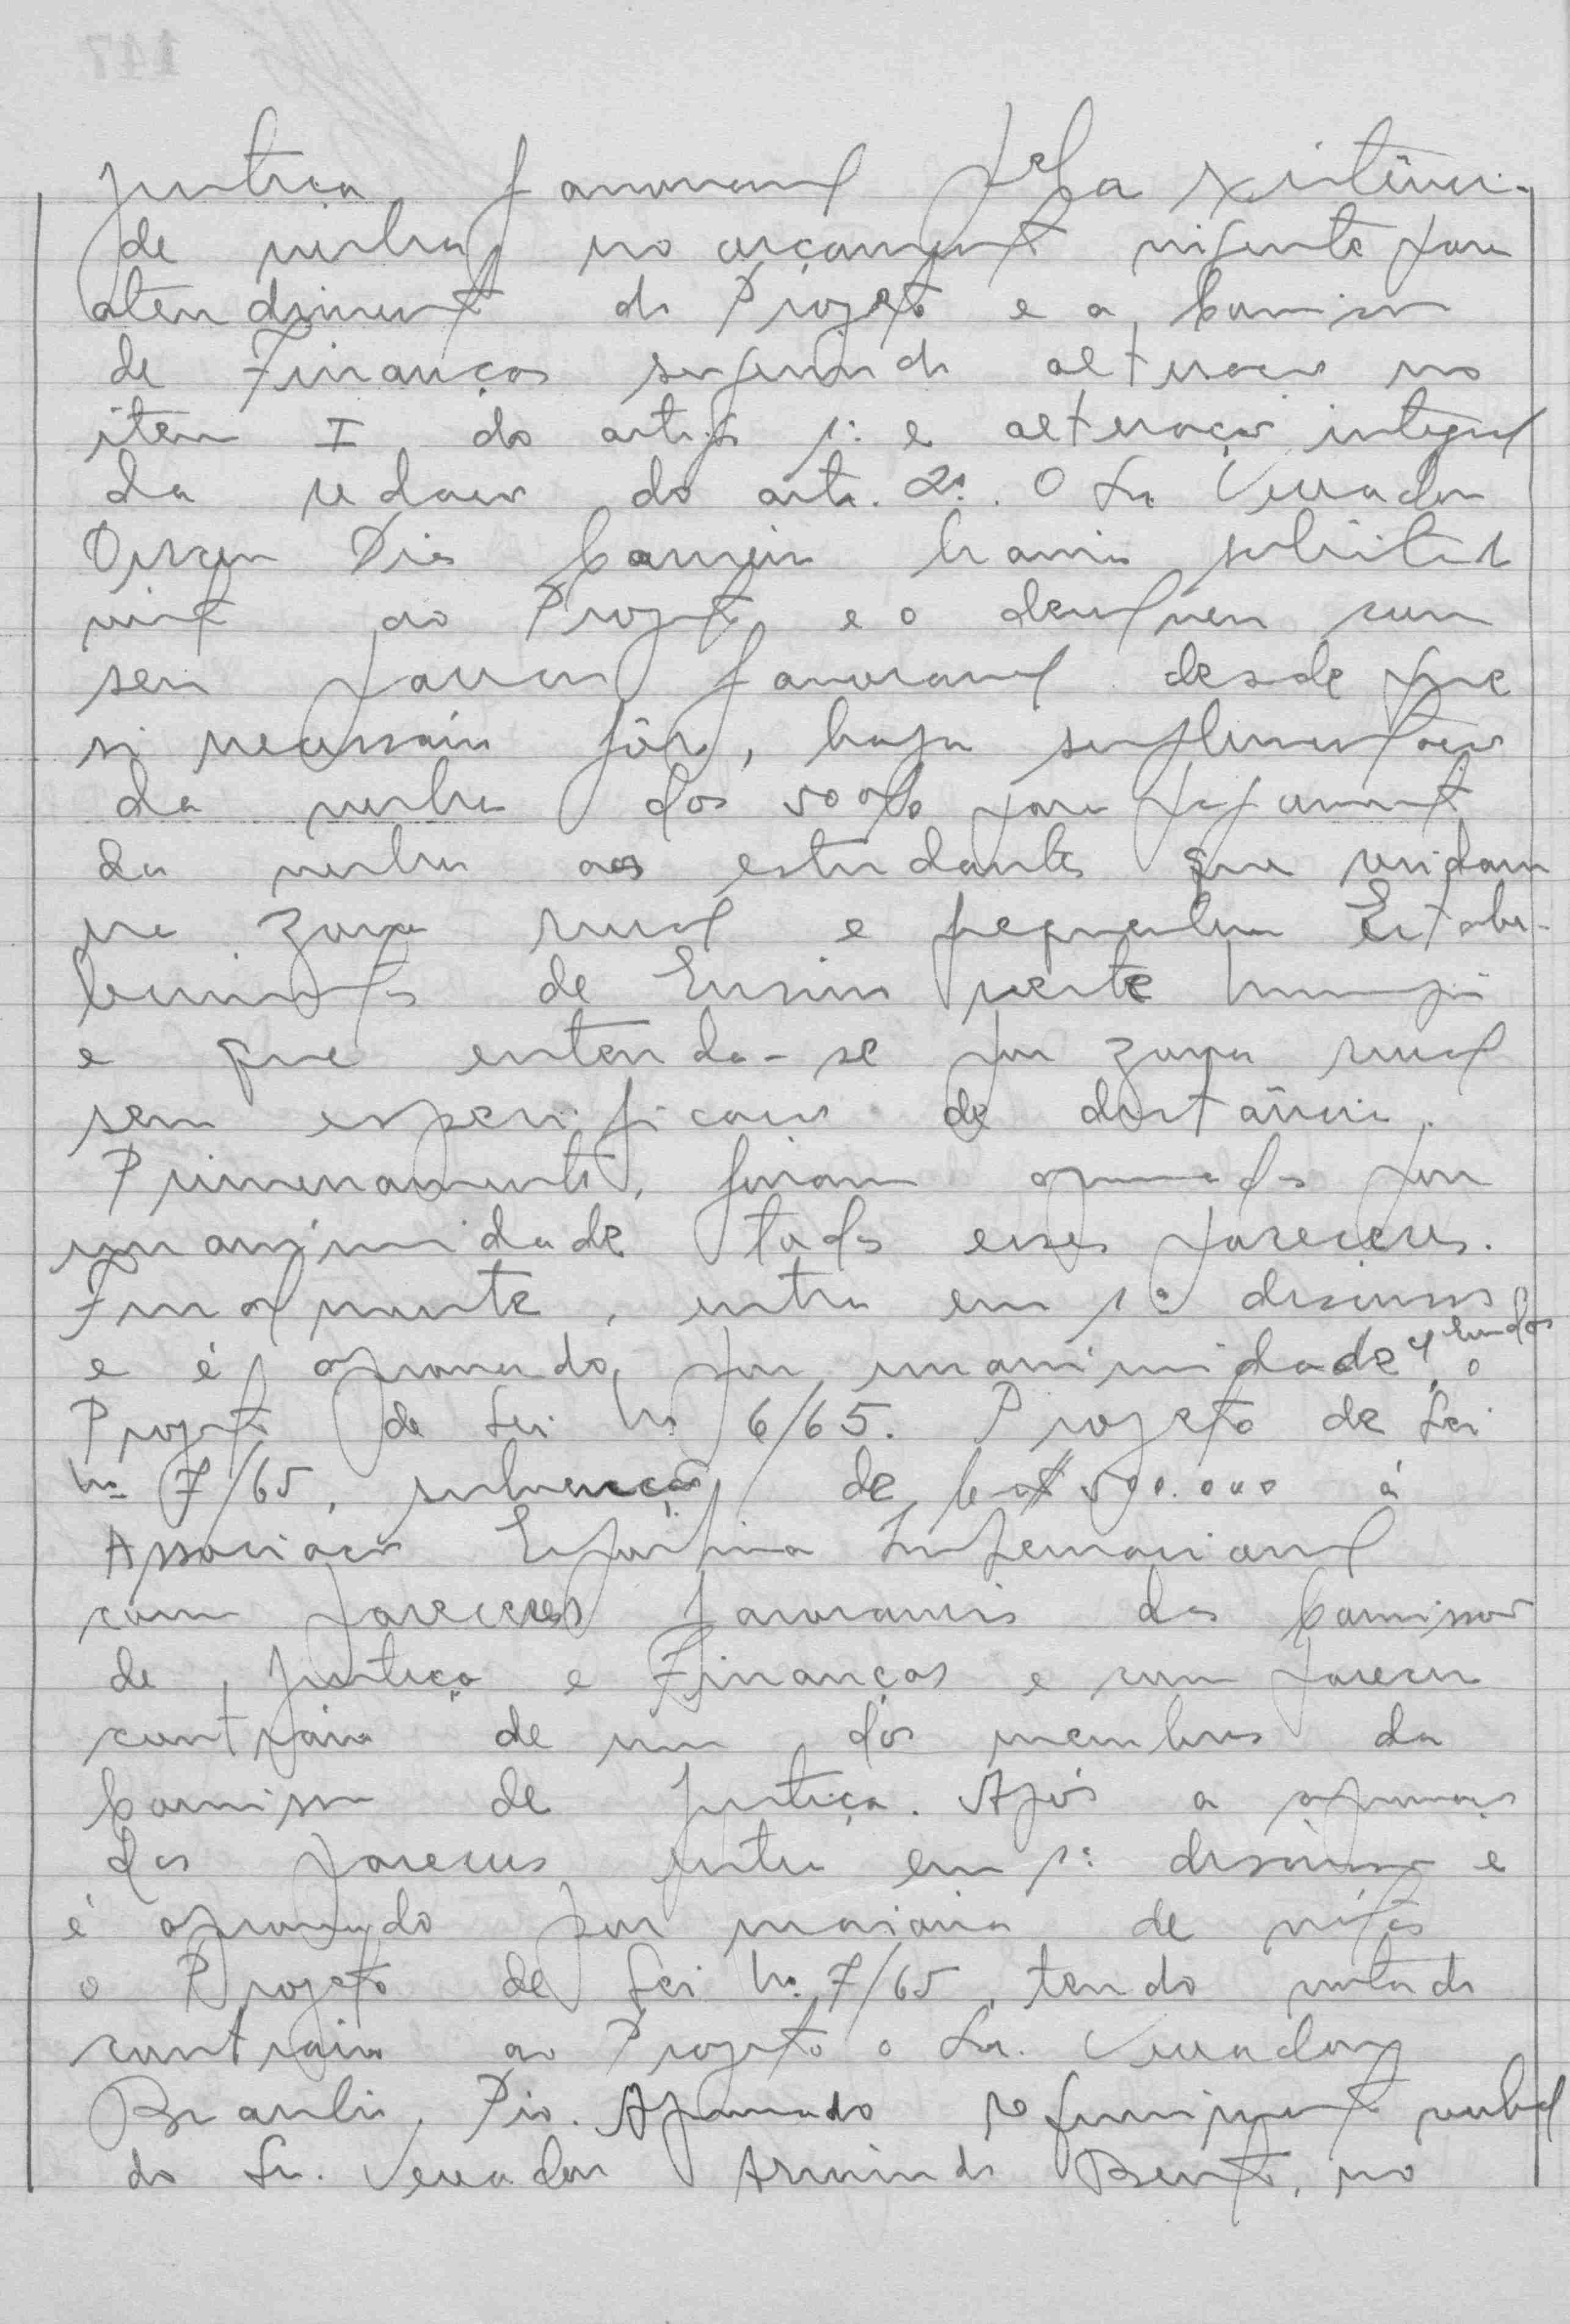 Justiça favoravel pela existênci-
de verba no orçamento vigente para
atendimento do Projeto e a Comissão
de Finanças sugerindo alteração no
item I do artigo 1º e alteração integral
da redação do art. 2º. O Sr. Vereador
Dias Carneiro havia solicitado
vista ao Projeto e o devolveu com
seu parecer favoravel desde que
si necessário fôr, haja suplementação
da verba dos 50% para pagamento
da verba aos estudantes que residam
na zona rural e frequentam Estabe-
lecimentos de Ensino neste Municipio
e que entenda-se por zona rural
sem especificação de distância.
Primeiramente, foram aprovados por
unanimidade todos esses pareceres.
Finalmente, entra em 1ª discussão
e é aprovado por unanimidade c/ emendas o
Projeto de Lei Nº 6/65. Projeto de Lei
Nº 7/65, subvenção de Cr$ 500.000 à
Associação Esportiva Internacional
com pareceres favoraveis das Comissões
de Justiça e Finanças e com parecer
contrário de um dos membros da
Comissão de Justiça. Após a aprovação
dos pareceres entra em 1ª discussão e
é aprovado por maioria de vótos
o Projeto de Lei Nº 7/65, tendo votado
contrário ao Projeto o Sr. Vereador
Braulio Pio. Aprovado requerimento verbal
do Sr. Vereador Armindo Bento, no